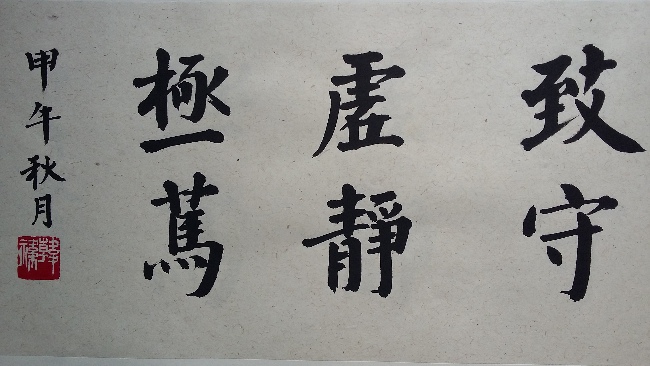 致虛極
守靜篤
甲午秋月